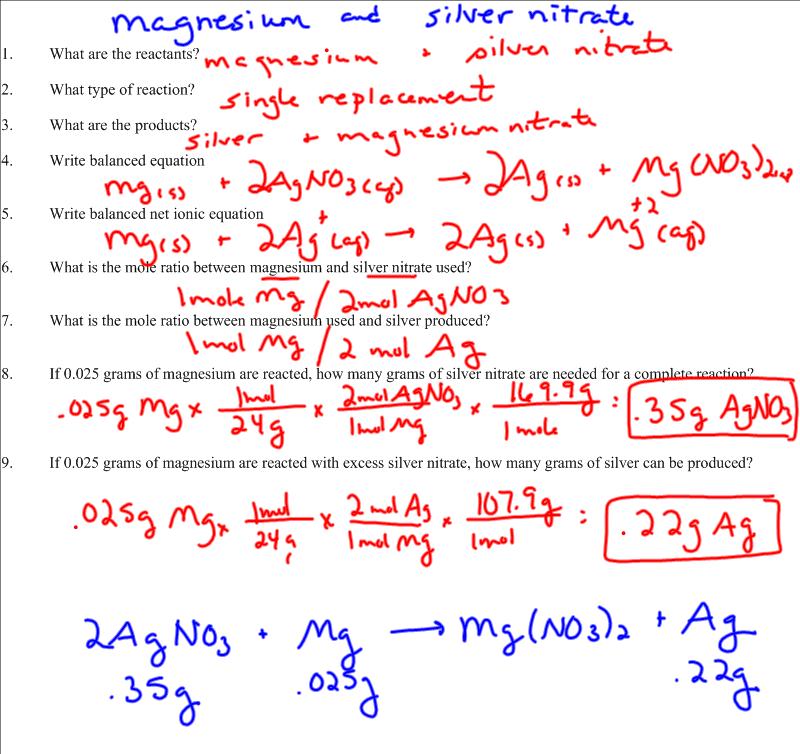 magnesium and silver nitrate
1. What are the reactants? magnesium + silver nitrate
2. What type of reaction? single replacement
3. What are the products? silver + magnesium nitrate
4. Write balanced equation
Mg(s) + 2AgNO3(aq) → 2Ag(s) + Mg(NO3)2(aq)
5. Write balanced net ionic equation
Mg(s) + 2Ag+(aq) → 2Ag(s) + Mg+2(aq)
6. What is the mole ratio between magnesium and silver nitrate used?
1mole Mg / 2mol AgNO3
7. What is the mole ratio between magnesium used and silver produced?
1mol Mg / 2 mol Ag
8. If 0.025 grams of magnesium are reacted, how many grams of silver nitrate are needed for a complete reaction?
.025g Mg x 1mol/24g x 2molAgNO3/1molMg x 169.9g/1mole = .35g AgNO3
9. If 0.025 grams of magnesium are reacted with excess silver nitrate, how many grams of silver can be produced?
.025g Mg x 1mol/24g x 2molAg/1molMg x 107.9g/1mol = .22g Ag
2AgNO3 + Mg → Mg(NO3)2 + Ag
.35g .025g .22g